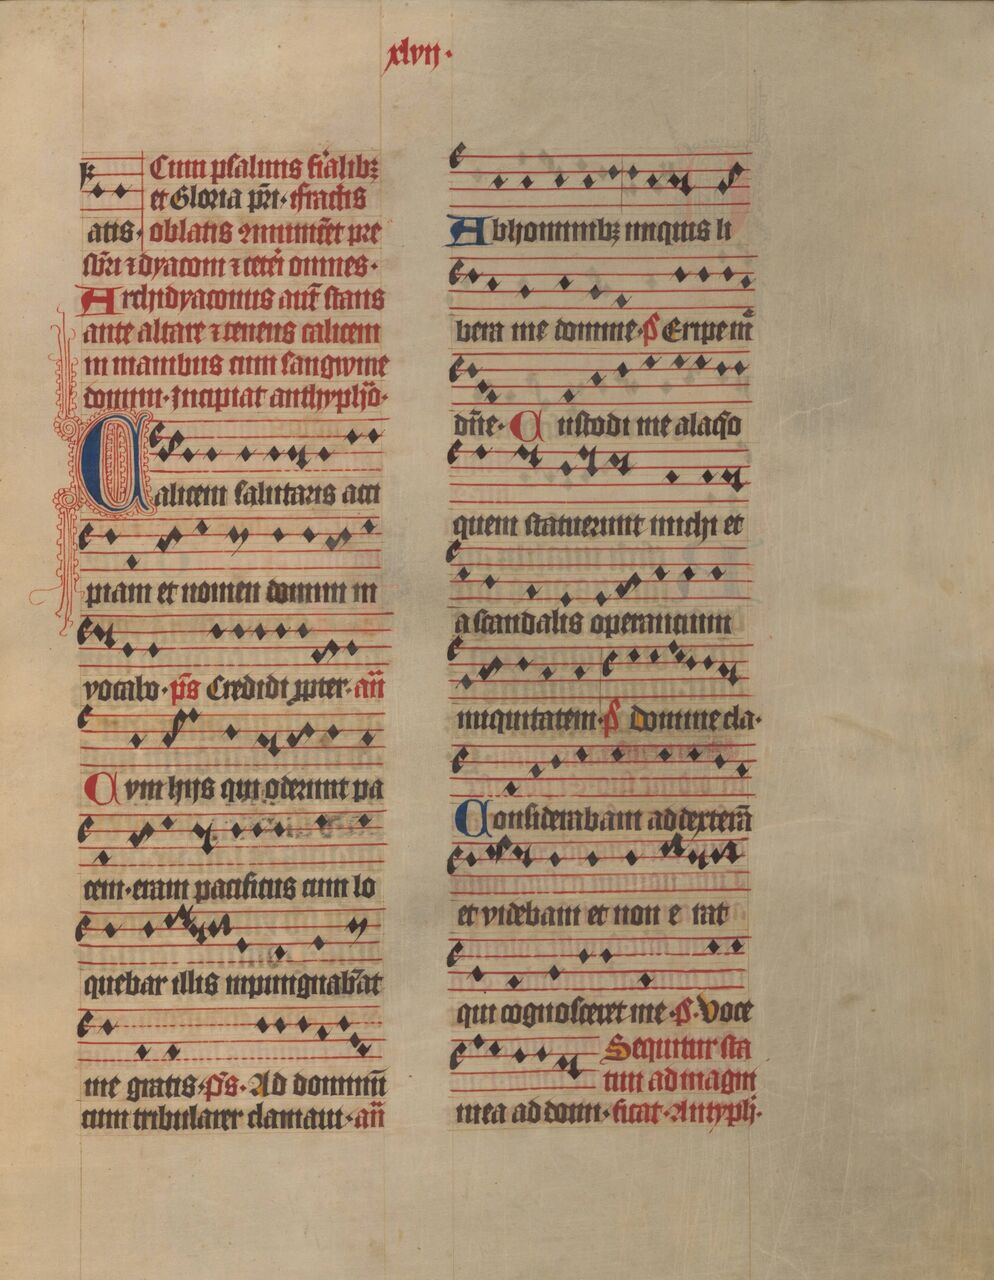 xlvij·
Cum psalmis
et Gloria pri·
atis· oblatis pre
sbri ⁊ dyaconi ⁊ omnes·
Archidyaconus aut stans
ante altare ⁊ tenens calicem
in manibus cum sangwine
domini· Incipiat
Calicem salutaris acci
piam et nomen domini in
vocabo· ps Credidi xpter· an
Cvm hijs qui oderunt pa
cem· eram pacificus cum lo
quebar illis inpungnabat
me gratis· ps· Ad dominum
cum tribularer clamaui· an
Abhominibꝫ iniquis li
bera me domine· ps Eripe me
dne· Custodi me alaqo
quem statuerunt michi et
ascandalis operancium
iniquitatem· ps domine cla·
Considerabam addexteram
et videbam et non e rat
qui cognosceret me· ps· Voce
Sequitur sta
tim ad magni
mea ad dom· ficat· Antyph·